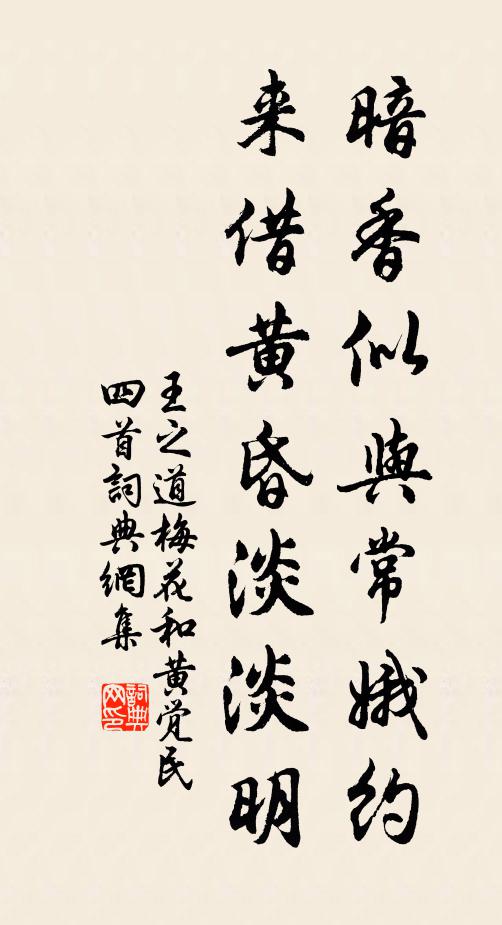 暗香似與常娥約
来借黄昏淡淡明
王之道梅花和黄觉民
四首詞典網集
詞典网印